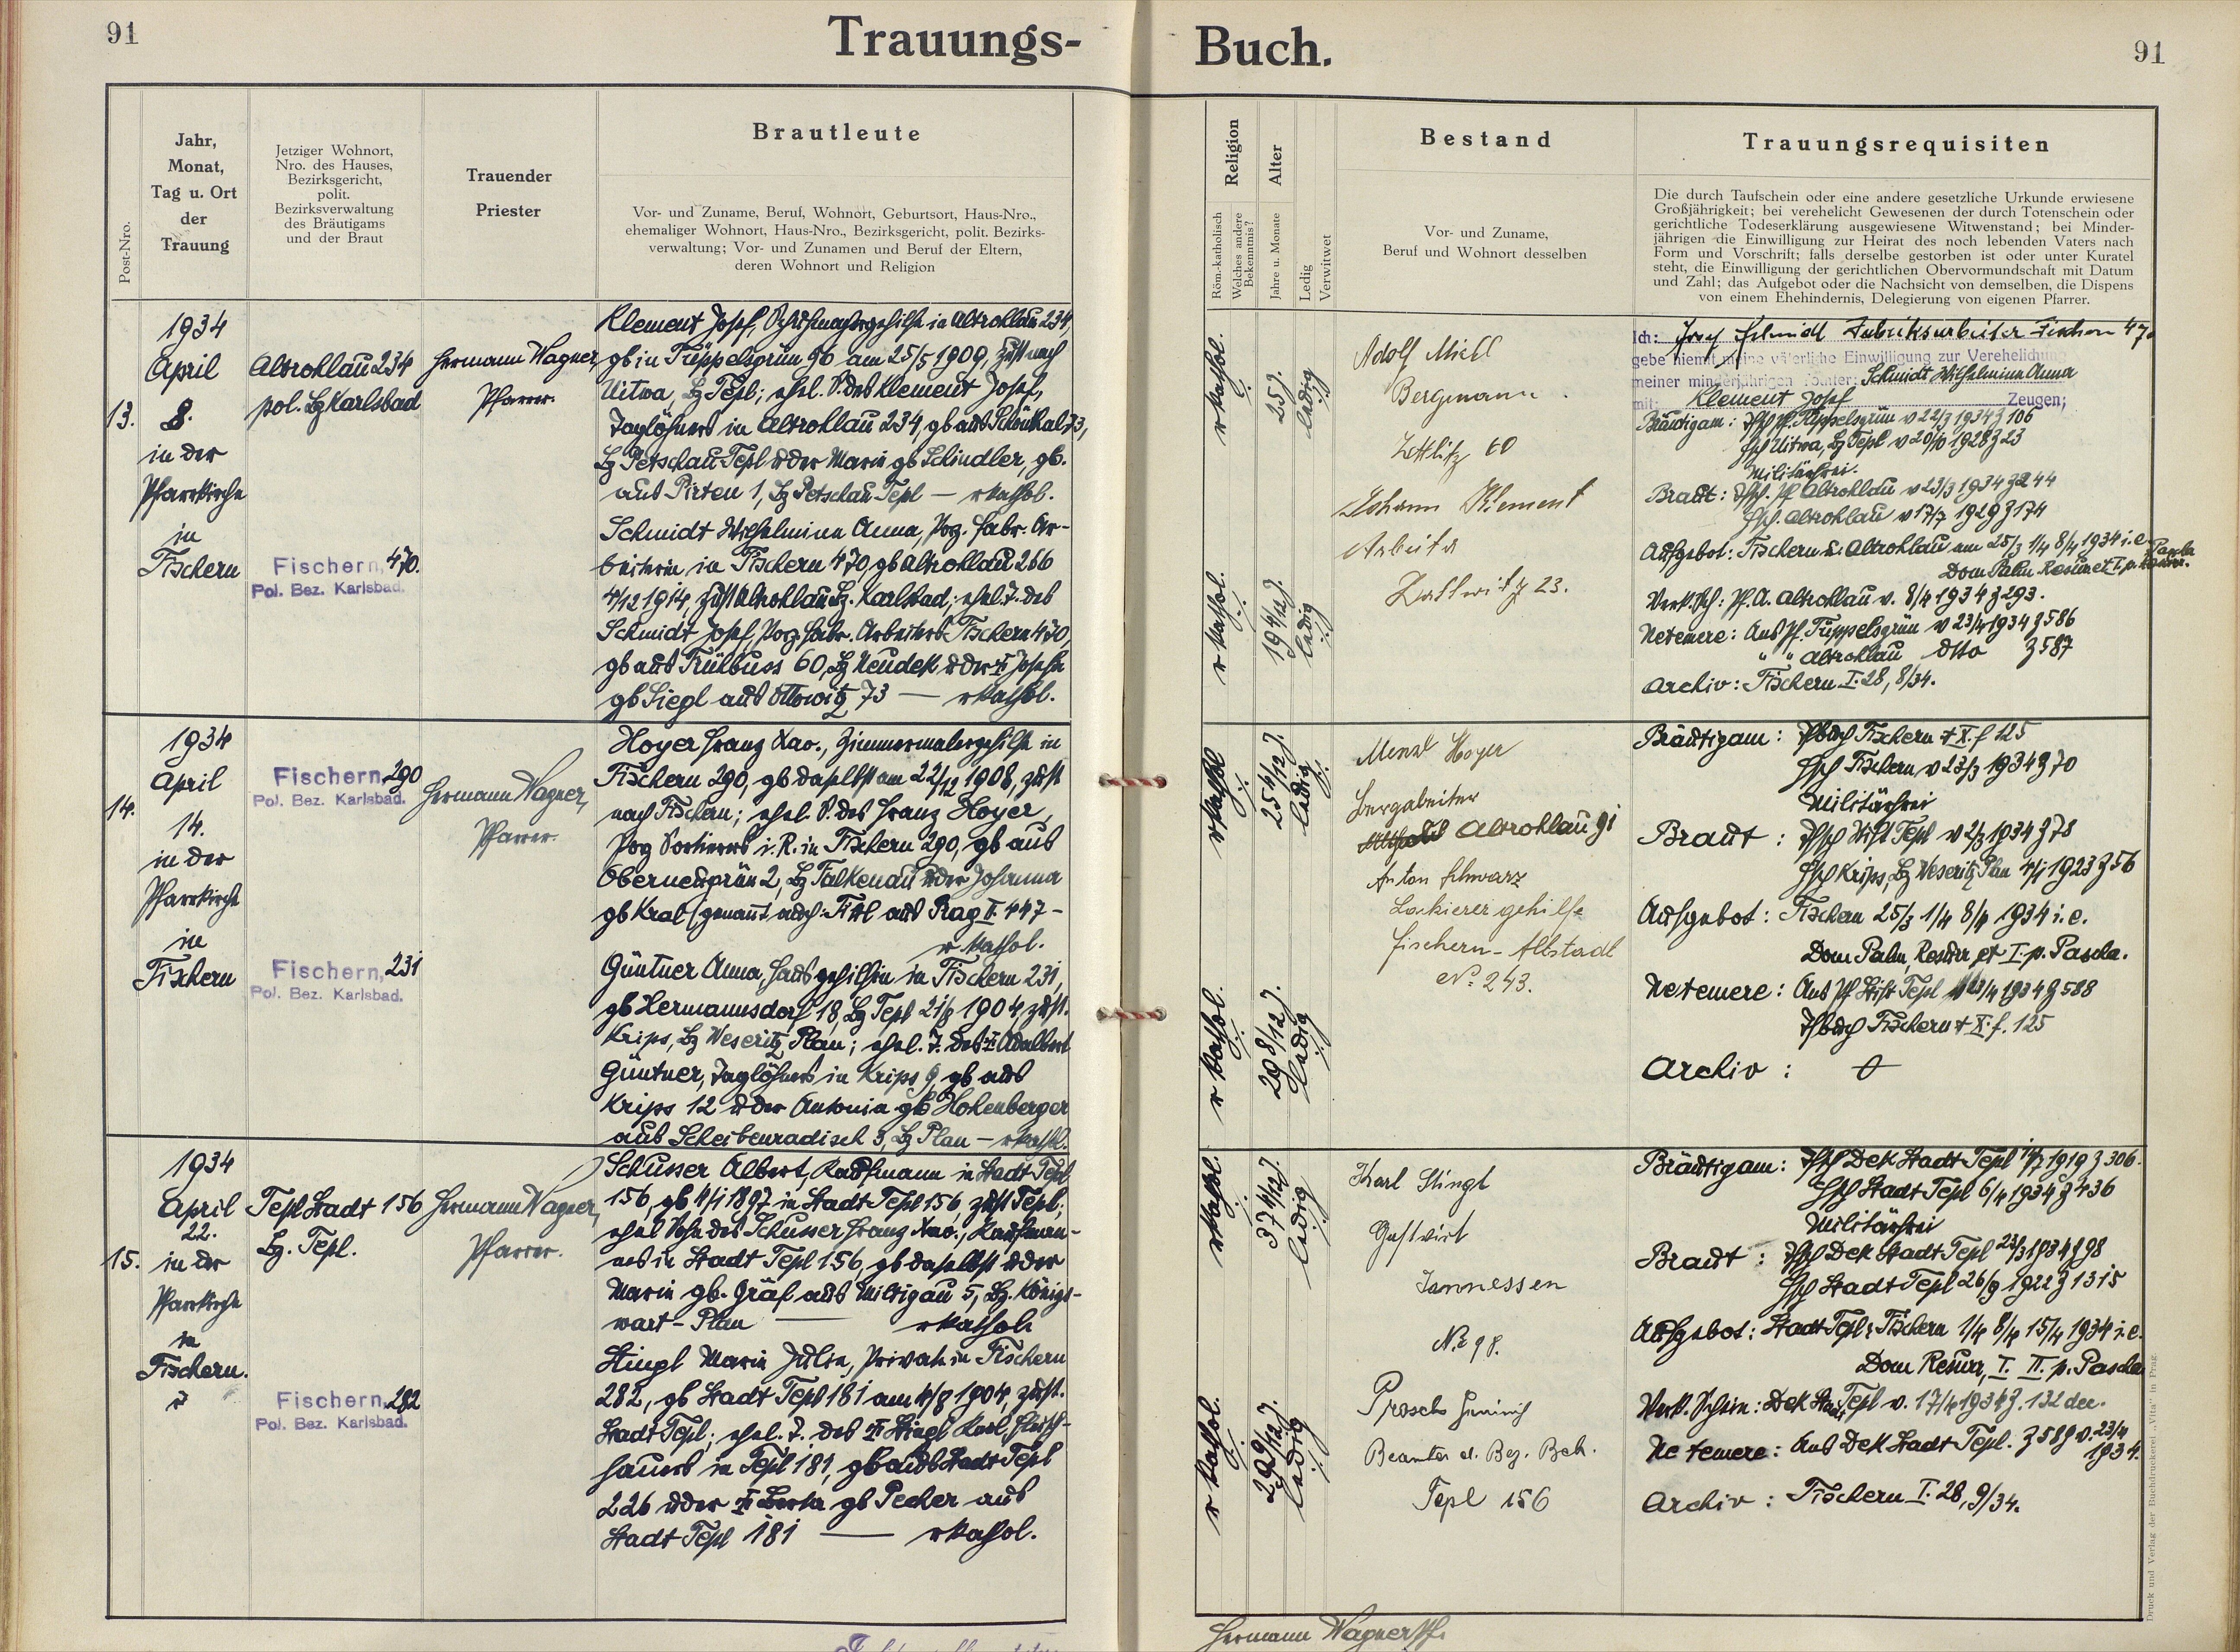 91
Trauungs-
Buch.
91
Post-Nro.
Jahr,
Monat,
Tag u. Ort
der
Trauung
Jetziger Wohnort,
Nro. des Hauses,
Bezirksgericht,
polit.
Bezirksverwaltung
des Bräutigams
und der Braut
Trauender
Priester
Brautleute
Vor- und Zuname, Beruf, Wohnort, Geburtsort, Haus-Nro.,
ehemaliger Wohnort, Haus-Nro., Bezirksgericht, polit. Bezirks-
verwaltung; Vor- und Zunamen und Beruf der Eltern,
deren Wohnort und Religion
Religion
Röm.-katholisch
Welches andere
Bekenntnis?
Alter
Jahre u. Monate
Ledig
Verwitwet
Bestand
Vor- und Zuname,
Beruf und Wohnort desselben
Trauungsrequisiten
Die durch Taufschein oder eine andere gesetzliche Urkunde erwiesene
Großjährigkeit; bei verehelicht Gewesenen der durch Totenschein oder
gerichtliche Todeserklärung ausgewiesene Witwenstand; bei Minder-
jährigen die Einwilligung zur Heirat des noch lebenden Vaters nach
Form und Vorschrift; falls derselbe gestorben ist oder unter Kuratel
steht, die Einwilligung der gerichtlichen Obervormundschaft mit Datum
und Zahl; das Aufgebot oder die Nachsicht von demselben, die Dispens
von einem Ehehindernis, Delegierung von eigenen Pfarrer.
13.
1934
April
8.
in der
Pfarrkirche
in
Fischern
Altrohlau 234
pol. Bz Karlsbad
Fischern, 470.
Pol. Bez. Karlsbad.
Hermann Wagner,
Pfarrer.
Klement Josef, Schuhmachergehilfe in Altrohlau 234,
gb in Tüppelsgrün 90 am 25/5 1909, zust nach
Uitwa, Bz Tepl; ehel. S. des Klement Josef,
Taglöhners in Altrohlau 234, gb aus Schönthal 73,
Bz Petschau Tepl u der Marie gb Schindler, gb.
aus Pirten 1, Bz Petschau Tepl — rkathol.
Schmidt Wilhelmine Anna, Porz. fabr. Ar-
beiterin in Fischern 470, gb Altrohlau 266
4/12 1914 zust Altrohlau Bz. Karlsbad; ehel. T. des
Schmidt Josef, Porz fabr. Arbeiters Fischern 470,
gb aus Frülbuss 60, Bz Neudek u der † Josefa
gb Siegl aus Ottowitz 73 — rkathol.
r kathol.
25 J.
ledig
r kathol.
19 4/12 J.
ledig
Adolf Miehl
Bergmann
Zettlitz 60
Johann Klement
Arbeiter
23.
Ich: Josef Schmidt Fabriksarbeiter Fischern 470
gebe hiemit meine väterliche Einwilligung zur Verehelichung
meiner minderjährigen Tochter: Schmidt Wilhelmine Anna
mit: Klement Josef Zeugen;
Bräutigam: Tfsch Pf. Tüppelsgrün v 22/3 1934 Z 106
Hsch Uitwa, Bz Tepl v 20/10 1928 Z 23
Militärfrei.
Braut: Tfsch. Pf Altrohlau v 23/3 1934 Z 244
Hsch. Altrohlau v 17/7 1929 Z 174
Aufgebot: Fischern u. Altrohlau am 25/3 1/4 8/4 1934 i.e.
Dom Palm. Resur et I. p. Pascha
Verk.sch: Pf. A. Altrohlau v. 8/4 1934 Z 293.
Netemere: Aus Pf. Tüppelsgrün v 23/4 1934 Z 586
" " Altrohlau dtto Z 587
Archiv: Fischern I. 28, 8/34.
14.
1934
April
14.
in der
Pfarrkirche
in
Fischern
Fischern, 290
Pol. Bez. Karlsbad.
Fischern, 231
Pol. Bez. Karlsbad.
Hermann Wagner,
Pfarrer.
Hoyer Franz Xav., Zimmermalergehilfe in
Fischern 290, gb daselbst am 22/12 1908, zust
nach Fischern; ehel. S. des Franz Hoyer,
Porz Sortierers i. R. in Fischern 290, gb aus
Oberneugrün 2, Bz Falkenau u der Johanna
gb Kral (genannt auch: Tittl aus Prag II. 447 –
r kathol.
Güntner Anna, Hausgehilfin in Fischern 231,
gb Hermannsdorf 18, Bz Tepl 21/8 1904, zust.
Krips, Bz Weseritz Plan; ehel. T. des † Adalbert
Güntner, Taglöhners in Krips 9, gb aus
Krips 12 u der Antonia gb Hohenberger
aus Scheibenradisch 3, Bz Plan — rkathol.
rkathol
25 4/12 J.
ledig
r kathol.
29 8/12 J.
ledig
Menzl Hoyer
Bergarbeiter
Altrohlau 91
Anton Schwarz
Lackierergehilfe
Fischern - Altstadt
No 243.
Bräutigam: Tfbuch Fischern † X. f 125
Hsch Fischern v 23/3 1934 Z 70
Militärfrei
Braut: Tfsch Stift Tepl v 2/3 1934 Z 78
Hsch Krips, Bz Weseritz Plan 4/1 1923 Z 56
Aufgebot: Fischern 25/3 1/4 8/4 1934 i. e.
Dom Palm, Resurr et I. p. Pascha.
Netemere: Aus Pf Stift Tepl 23/4 1934 Z 588
Tfbuch Fischern † X. f. 125
Archiv:
15.
1934
April
22.
in der
Pfarrkirche
in
Fischern.
Tepl Stadt 156
Bz. Tepl.
Fischern, 282
Pol. Bez. Karlsbad.
Hermann Wagner,
Pfarrer.
Schusser Albert, Kaufmann in Stadt Tepl
156, gb 4/1 1897 in Stadt Tepl 156, zust Tepl;
ehel Sohn des Schusser Franz Xav., Kaufman-
nes in Stadt Tepl 156, gb daselbst u der
Marie gb. Gräf aus Miltigau 5, Bz. Königs-
wart - Plan — rkathol.
Stingl Marie Julie, Private in Fischern
282, gb Stadt Tepl 181 am 4/8 1904, zust.
Stadt Tepl; ehel. T. des † Stingl Karl, Fleisch-
hauers in Tepl 181, gb aus Stadt Tepl
226 u der † Berta gb Pecher aus
Stadt Tepl 181 — rkathol.
rkathol.
37 4/12 J.
ledig
r kathol.
29 9/12 J.
ledig
Karl Stingl
Gastwirt
Jannessen
No 98.
Prosch Heinrich
Beamter d. Bez. Beh.
Tepl 156
Bräutigam: Tfsch Dek Stadt Tepl 14/7 1919 Z 306.
Hsch Stadt Tepl 6/4 1934 Z 436
Militärfrei
Braut: Tfsch Dek Stadt Tepl 23/3 1934 Z 98
Hsch Stadt Tepl 26/9 1922 Z 1315
Aufgebot: Stadt Tepl u Fischern 1/4 8/4 15/4 1934 i. e.
Dom Resurr, I. II. p. Pascha
Verk. Schein: Dek Stadt Tepl v. 17/4 1934 Z. 132 dec.
Ne temere: Aus Dek Stadt Tepl. Z 589 v. 23/4
1934.
Archiv: Fischern I. 28, 9/34.
Hermann Wagner Pf.
Druck und Verlag der Buchdruckerei „Vita" in Prag.